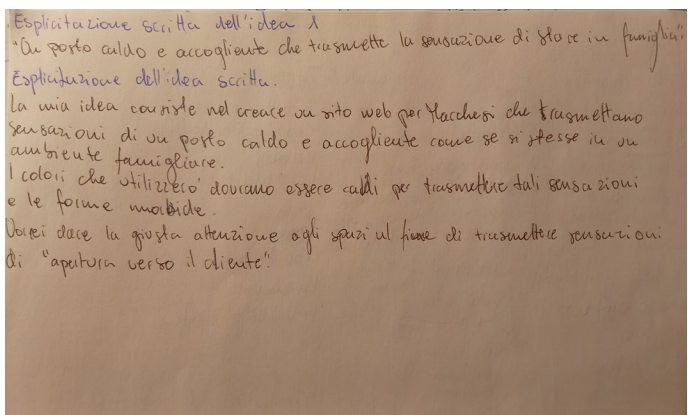 Esplicitazione scritta dell'idea 1
"Un posto caldo e accogliente che trasmette la sensazione di stare in famiglia".
Esplicitazione dell'idea scritta.
La mia idea consiste nel creare un sito web per Marchesi che trasmettano
sensazioni di un posto caldo e accogliente come se si stesse in un
ambiente famigliare.
I colori che utilizzerò dovranno essere caldi per trasmettere tali sensazioni
e le forme morbide.
Vorrei dare la giusta attenzione agli spazi al fine di trasmettere sensazioni
di "apertura verso il cliente".